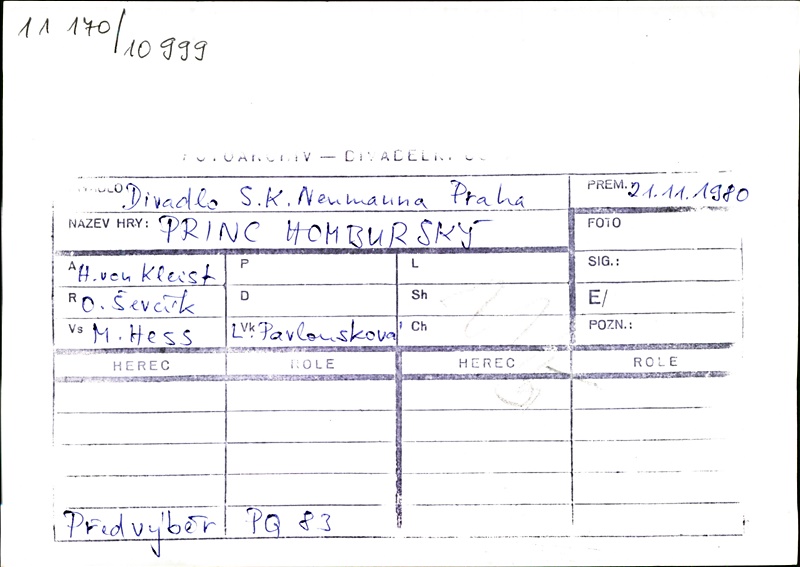 11 170/10 999
FOTOARCHIV — DIVADELNÍ
DIVADLO Divadlo S.K. Neumanna Praha PREM. 21.11.1980
NÁZEV HRY: PRINC HOMBURSKÝ FOTO
A H. von Kleist P L SIG.:
R O. Ševčík D Sh E/
Vs M. Hess Vk Ch POZN.:
HEREC ROLE HEREC ROLE
Předvýběr PQ 83